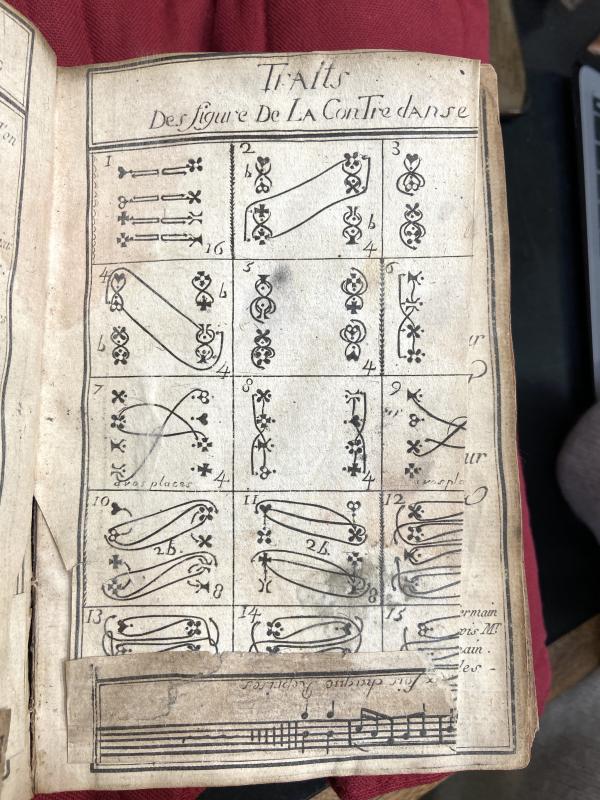 Traits
Des figure De LA ConTre danse
1 2 3
b
16 b 4
4 5 6
b
b 4 4
7 8 9
avos places 4 4 avos pla
ur
10 11 12
2b. 2b.
8 8
13 14 15
ermain
vis Mr
ain.
les -
x fois chaque Reprises